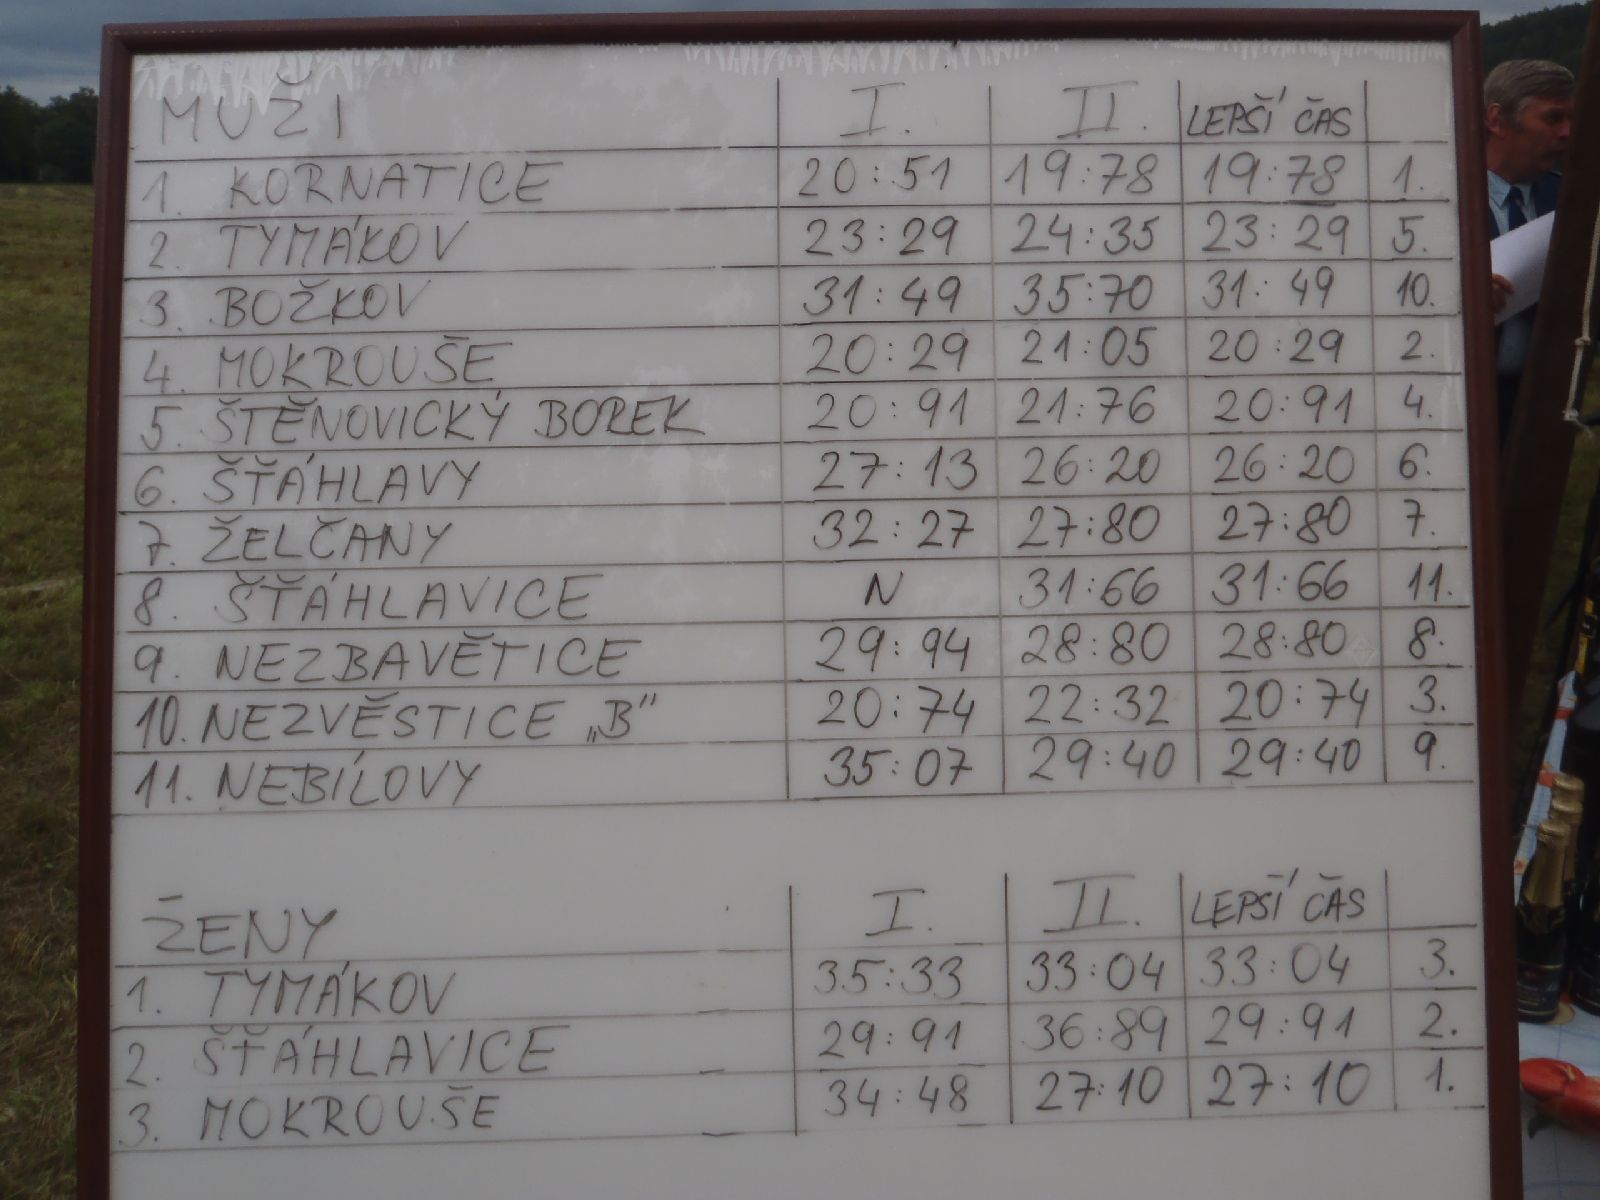 MUŽI I. II. LEPŠÍ ČAS
1. KORNATICE 20:51 19:78 19:78 1.
2. TYMÁKOV 23:29 24:35 23:29 5.
3. BOŽKOV 31:49 35:70 31:49 10.
4. MOKROUŠE 20:29 21:05 20:29 2.
5. ŠTĚNOVICKÝ BOREK 20:91 21:76 20:91 4.
6. ŠŤÁHLAVY 27:13 26:20 26:20 6.
7. ŽELČANY 32:27 27:80 27:80 7.
8. ŠŤÁHLAVICE N 31:66 31:66 11.
9. NEZBAVĚTICE 29:94 28:80 28:80 8.
10. NEZVĚSTICE „B" 20:74 22:32 20:74 3.
11. NEBÍLOVY 35:07 29:40 29:40 9.
ŽENY I. II. LEPŠÍ ČAS
1. TYMÁKOV 35:33 33:04 33:04 3.
2. ŠŤÁHLAVICE 29:91 36:89 29:91 2.
3. MOKROUŠE 34:48 27:10 27:10 1.